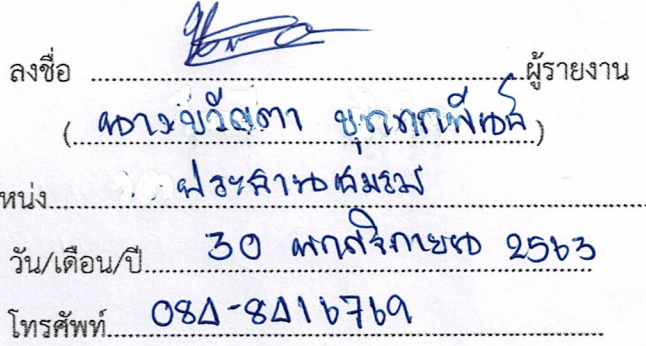 ลงชื่อ ........................ผู้รายงาน
(นางขวัญตา)
หน่ง.....ประธานชมรม
วัน/เดือน/ปี.....30 พฤศจิกายน 2563
โทรศัพท์.....084-8416769